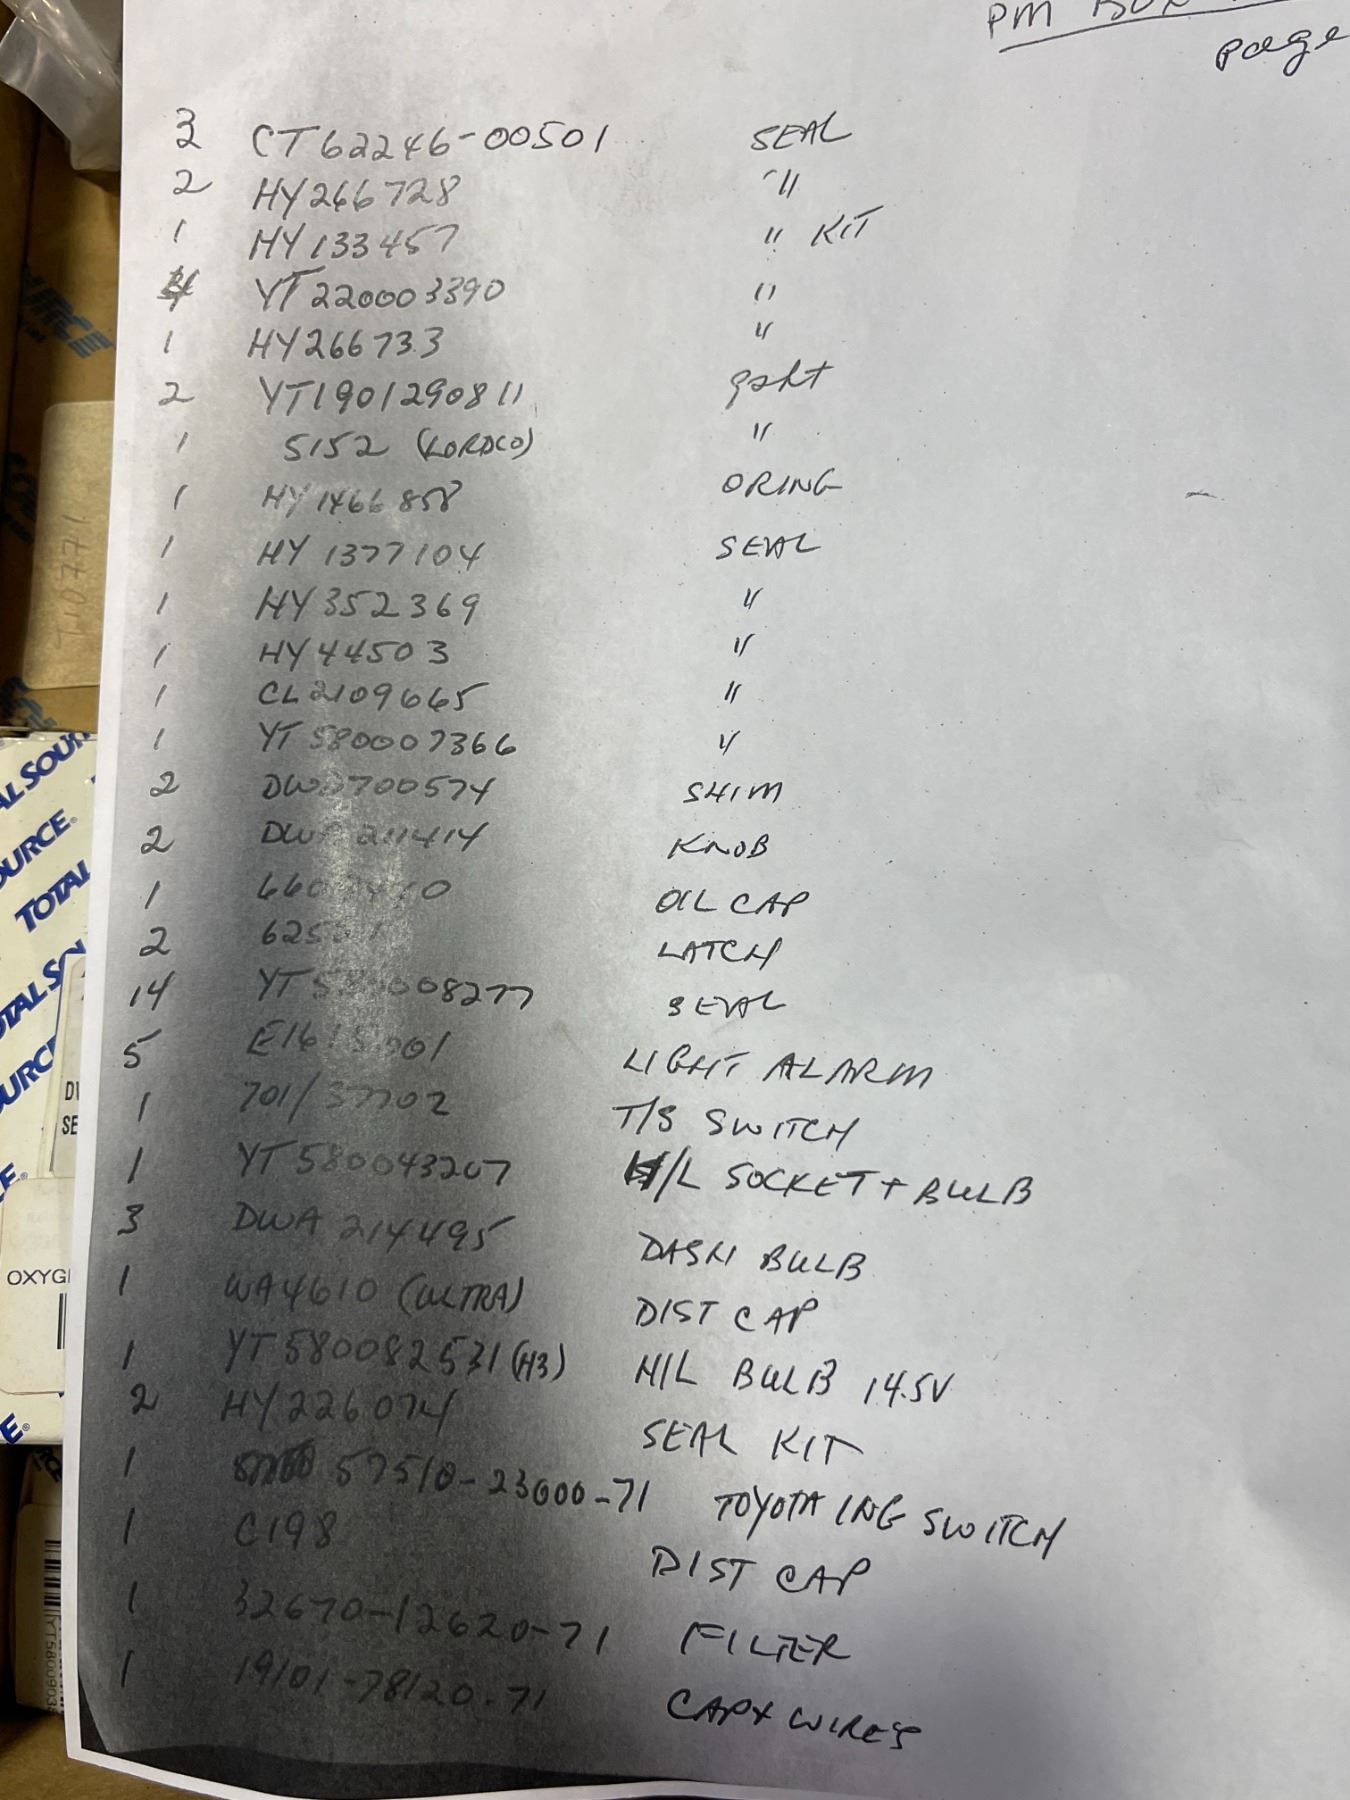 PM BOX
page
3 CT62246-00501 SEAL
2 HY266728 "
1 HY133457 " KIT
4 YT220003390 "
1 HY266733 "
2 YT1901290811 gskt
1 5152 (LORDCO) "
1 HY1466858 ORING
1 HY1377104 SEAL
1 HY352369 "
1 HY44503 "
1 CL2109665 "
1 YT580007366 "
2 SHIM
2 KNOB
1 OIL CAP
2 LATCH
14 SEAL
5 LIGHT ALARM
1 701/37702 T/S SWITCH
1 YT580043207 H/L SOCKET + BULB
3 DWA214495 DASH BULB
1 WA4610 (ULTRA) DIST CAP
1 YT580082531 (H3) H/L BULB 14.5V
2 HY226074 SEAL KIT
1 57510-23000-71 TOYOTA ING SWITCH
1 C198 DIST CAP
1 32670-12620-71 FILTER
1 19101-78120-71 CAP + WIRES
TN0771
TOTAL SOURCE
OXYG
DW
SE